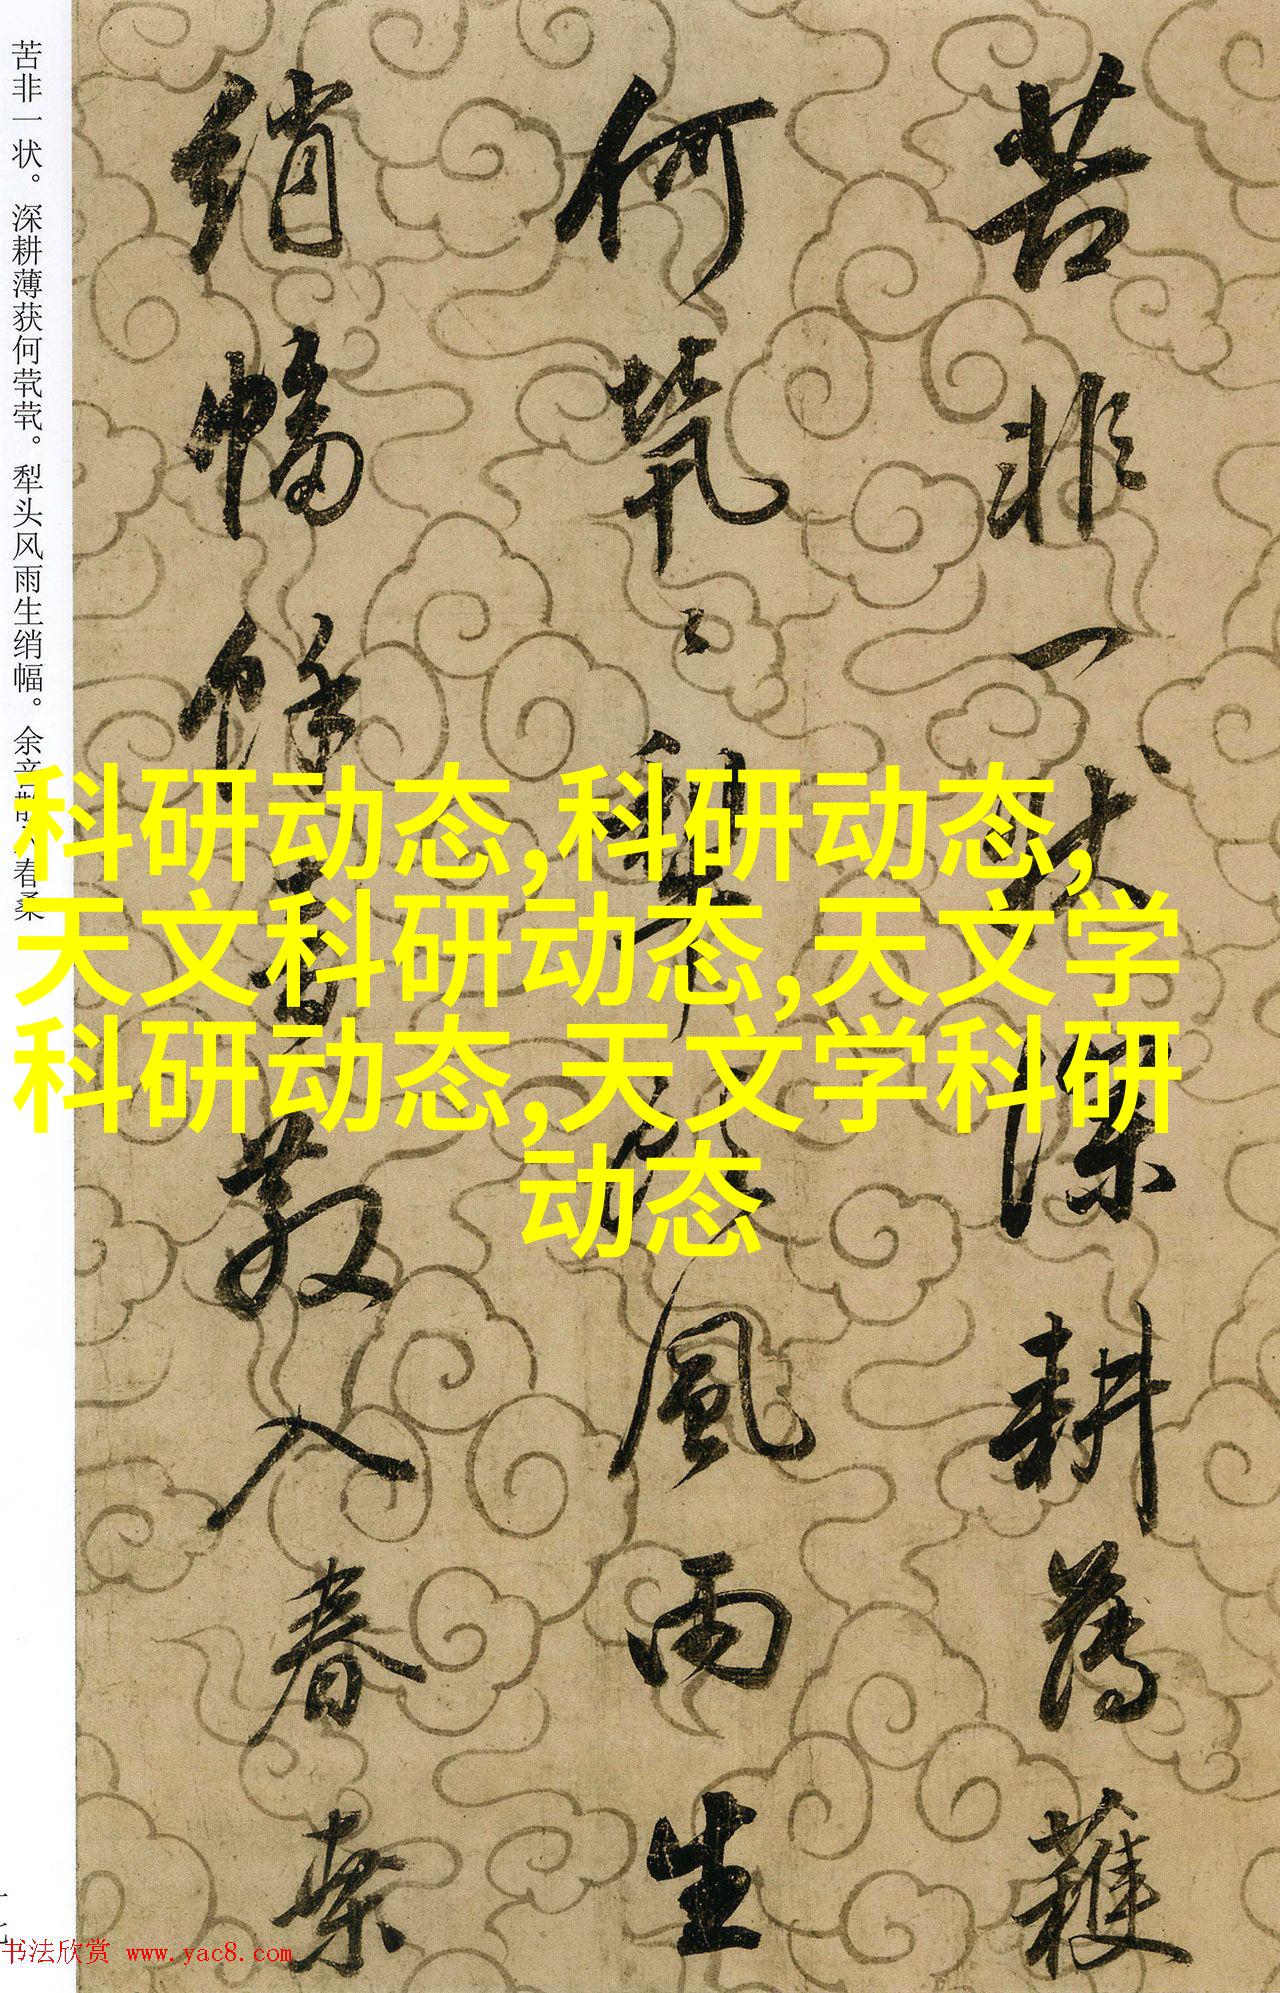 苦非一狀深耕薄穫
何煢〻犁頭風雨生
綃幅餘音散入春桑
苦非一状。深耕薄获何茕茕。犁头风雨生绡幅。余音散入春桑
科研动态,科研动态,
天文科研动态,天文学
科研动态,天文学科研
动态
书法欣赏 www.yac8.com